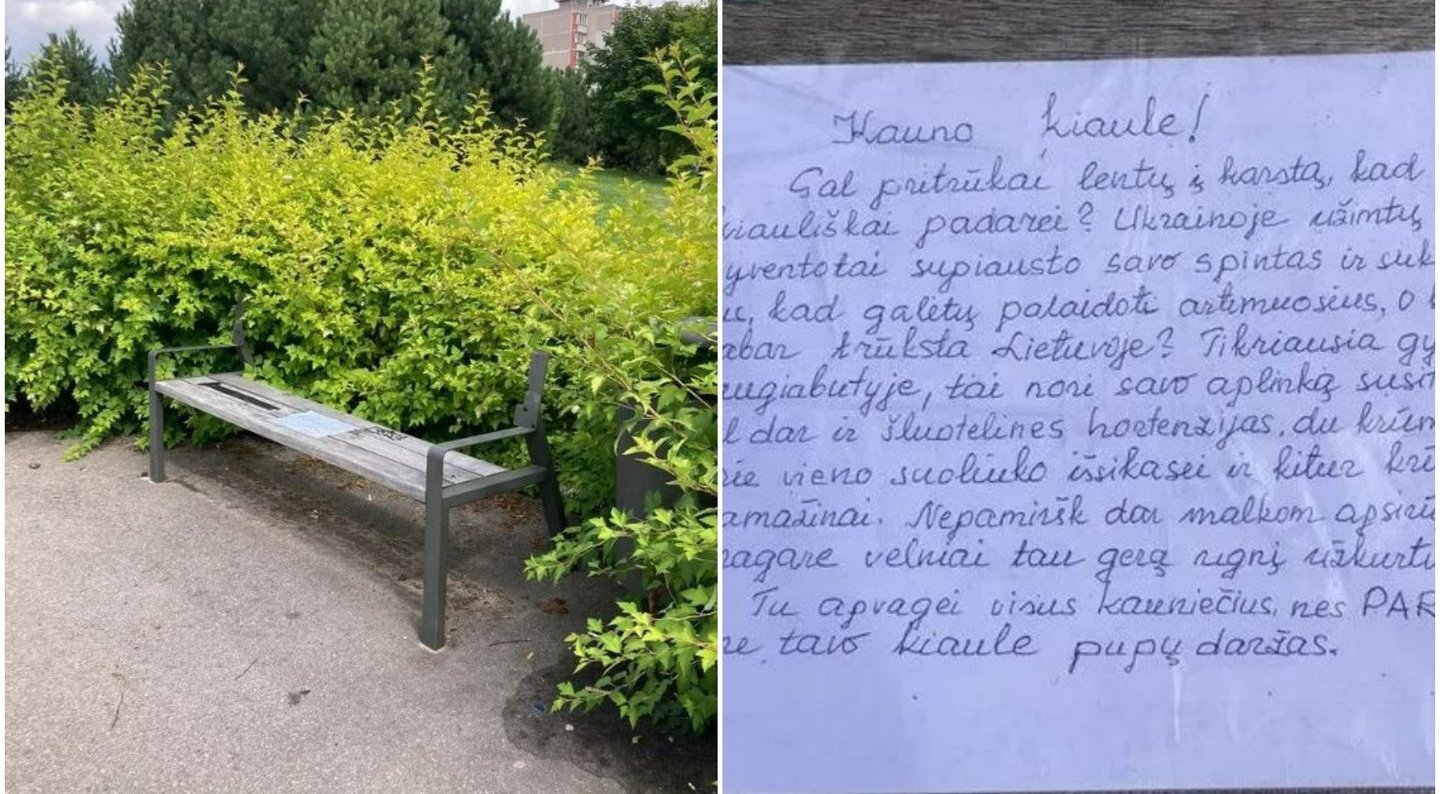 Kauno kiaule!
Gal pritrūkai lentų į karstą, kad
kiauliškai padarei? Ukrainoje užimtų
yventotai supiausto savo spintas ir suk
kad galėtų palaidoti artimuosius, o
abar trūksta Lietuvoje? Tikriausia gy
augiabutyje, tai nori savo aplinką susit
l dar ir šluotelines hortenzijas, du krūm
rie vieno suoliuko išsikasei ir kitur krū
amažinai. Nepamiršk dar malkom apsirū
ragare velniai tau gerą ugnį užkurtų
Tu apvagei visus kauniečius, nes PAR
re tavo kiaule pupų daržas.